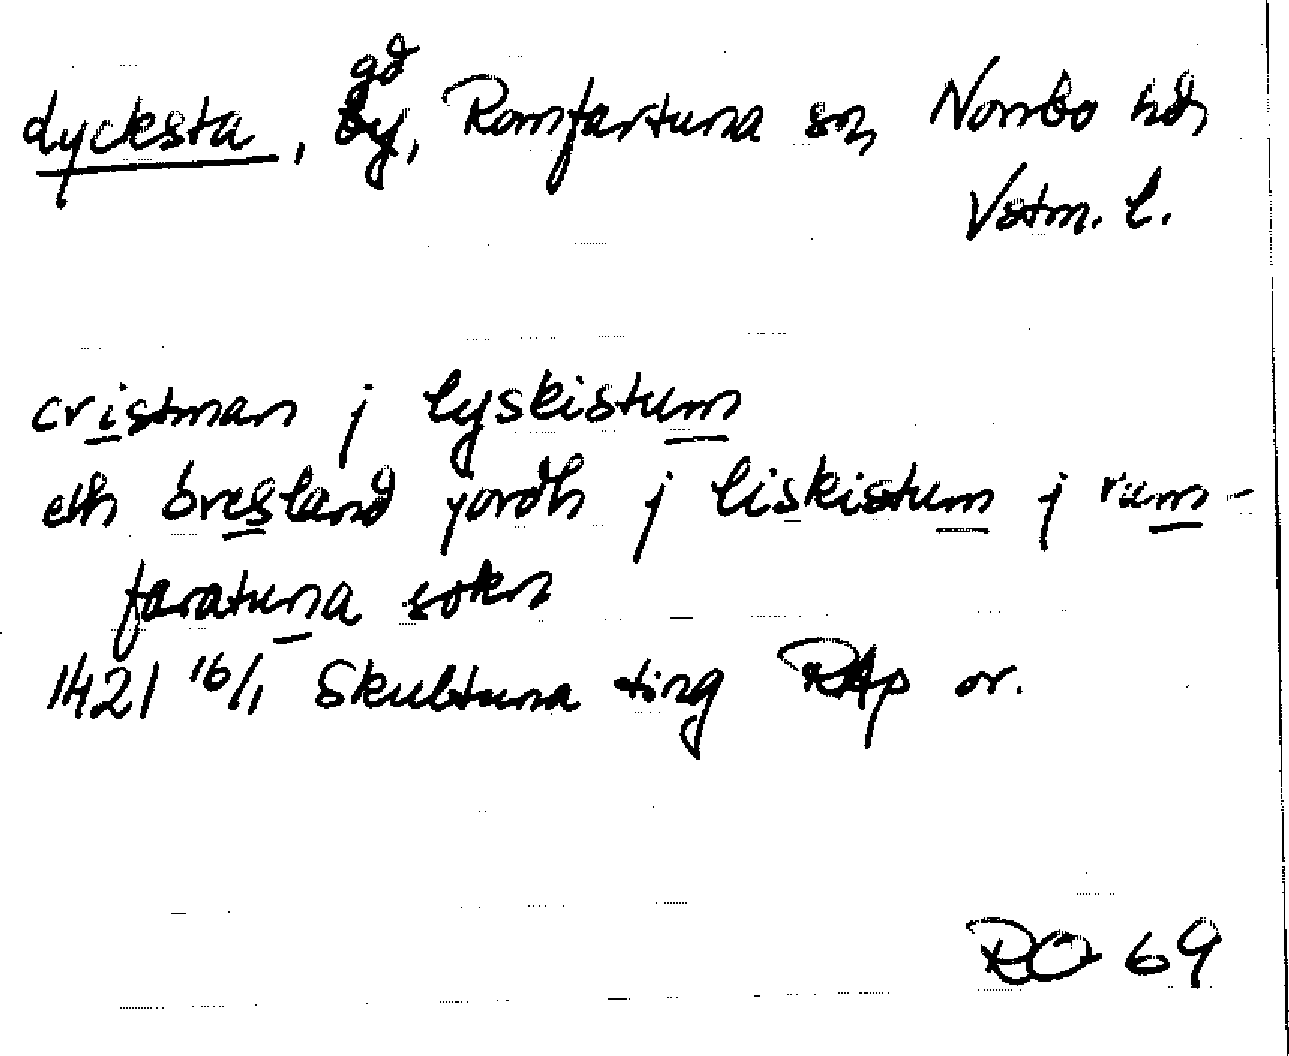 Lycksta, gd by, Romfartuna sn, Norrbo hd,
Vstm. l.
cristman j lyskistum
eth öresland jordh j liskistum j ram-
faratuna sokn
1421 16/1 Skultuna ting RAp or.
RO 69